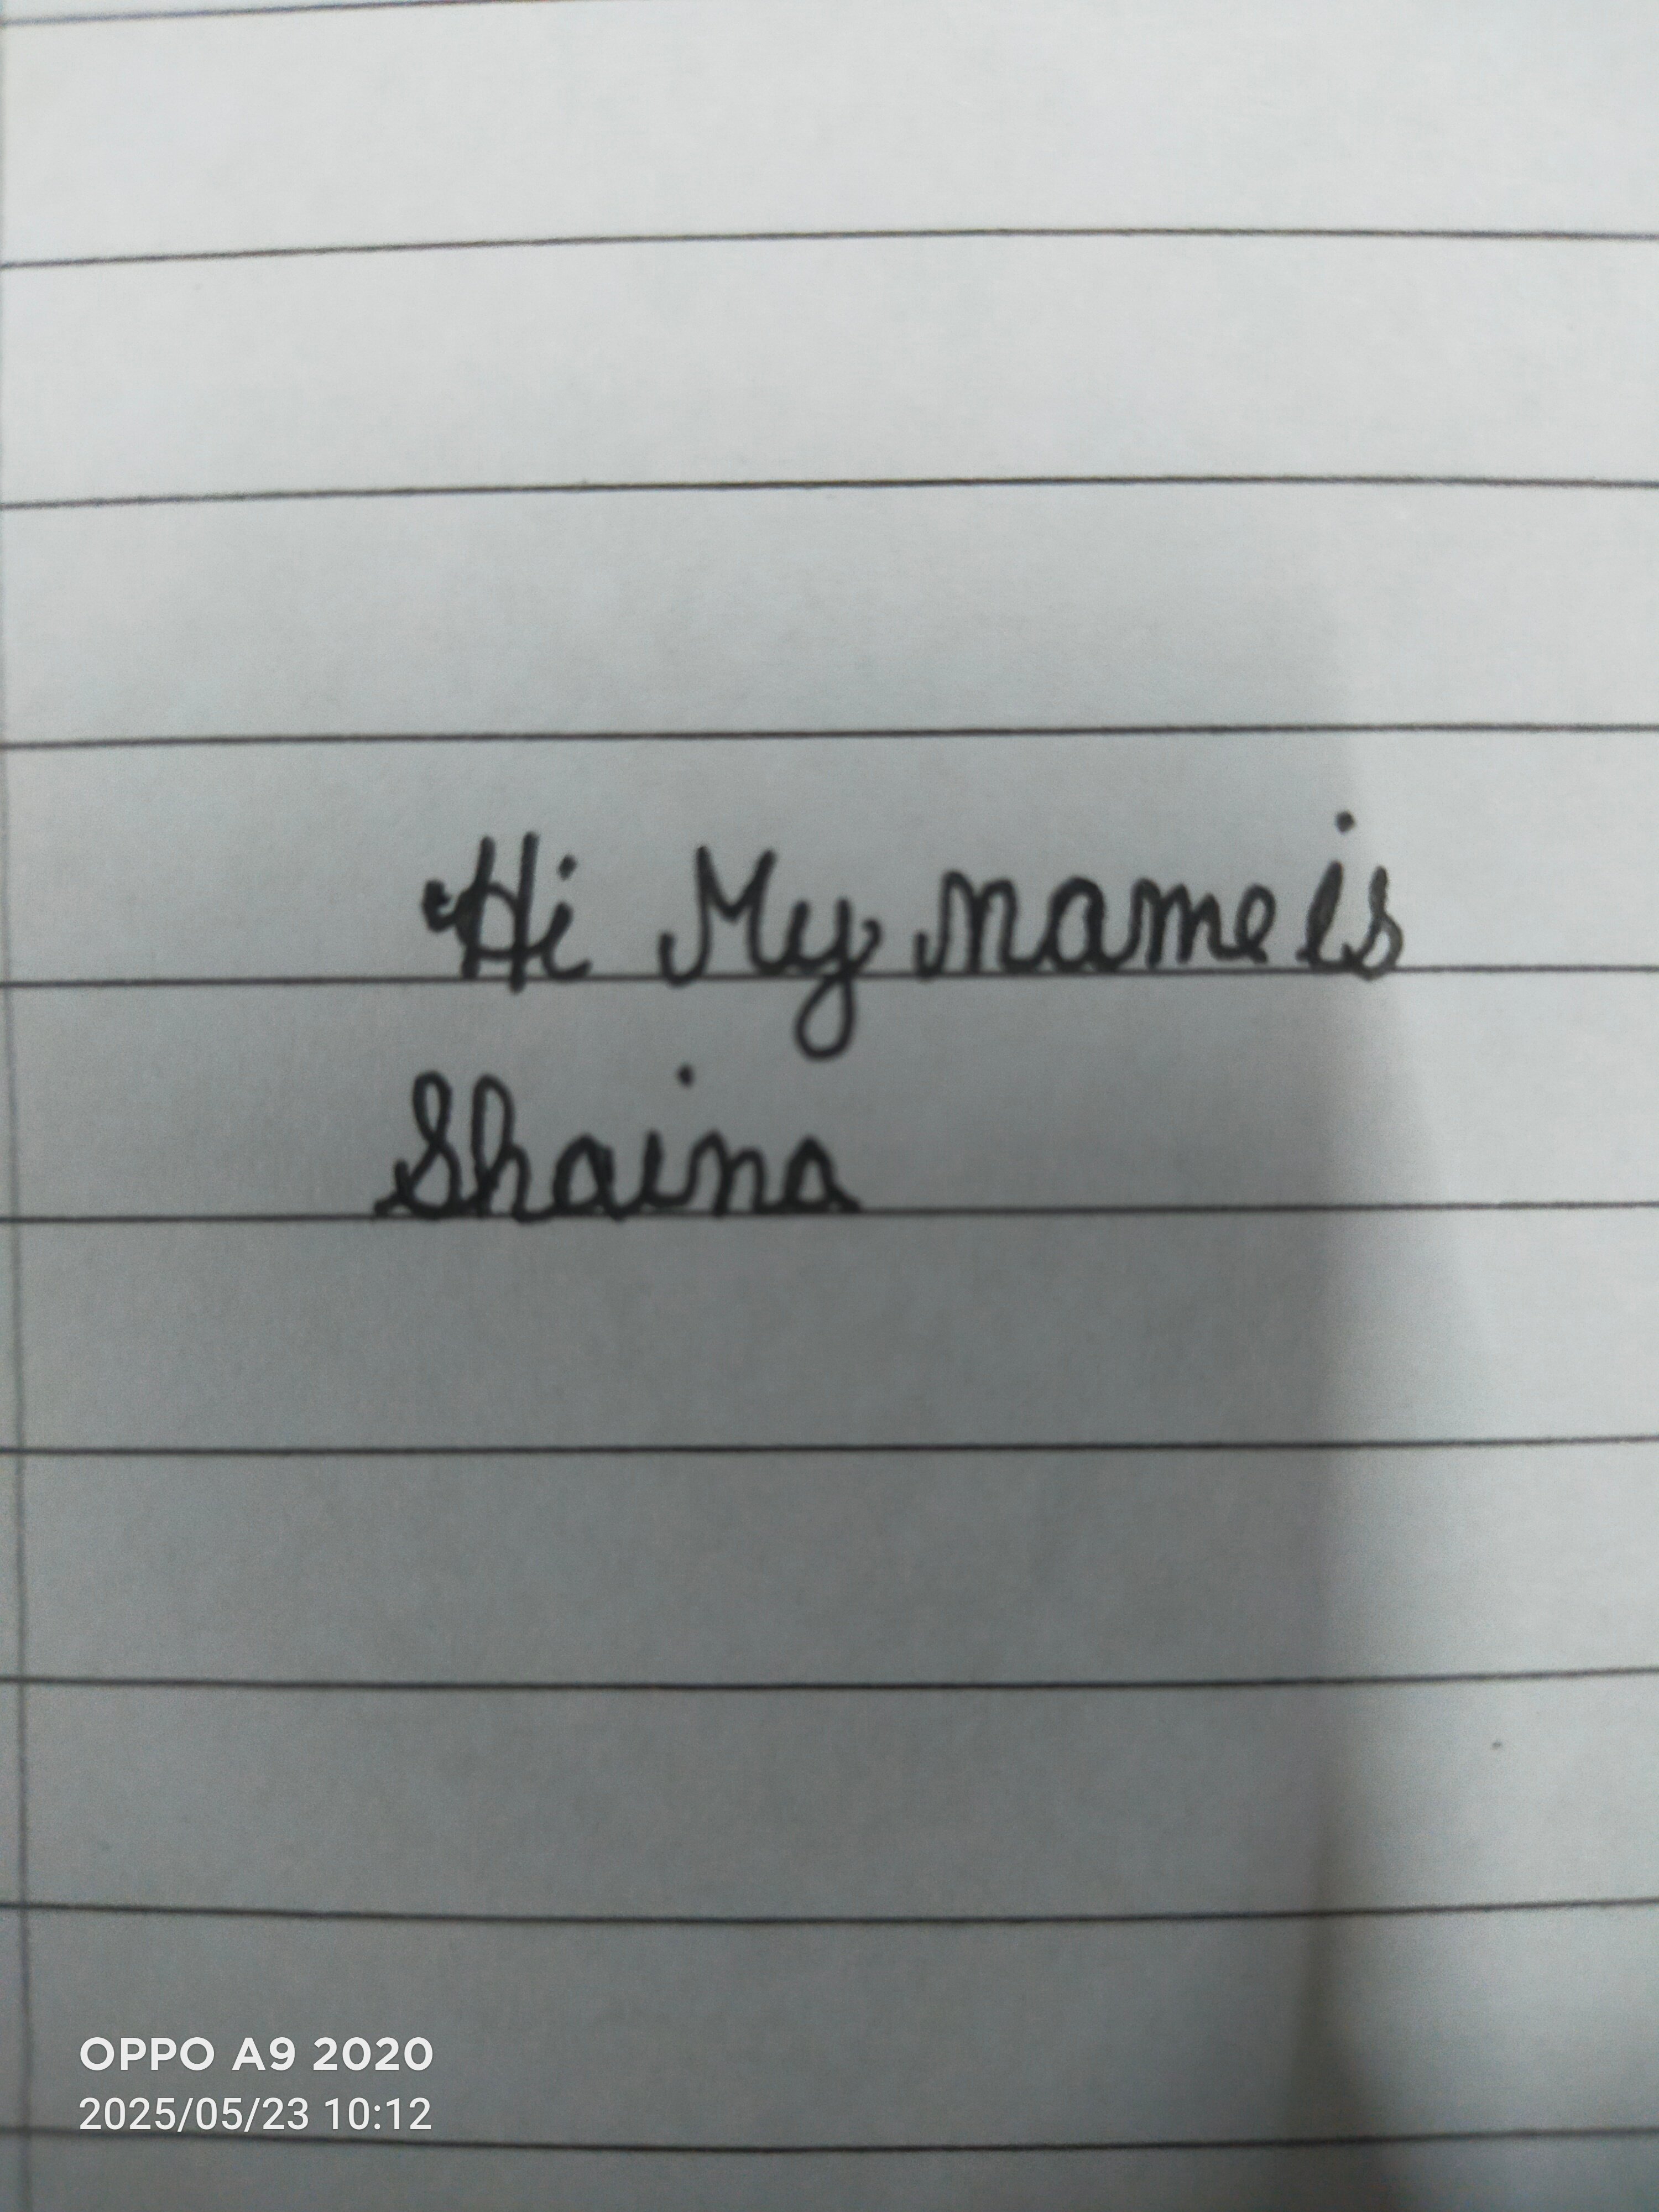 Hi My name is
Shaina
OPPO A9 2020
2025/05/23 10:12